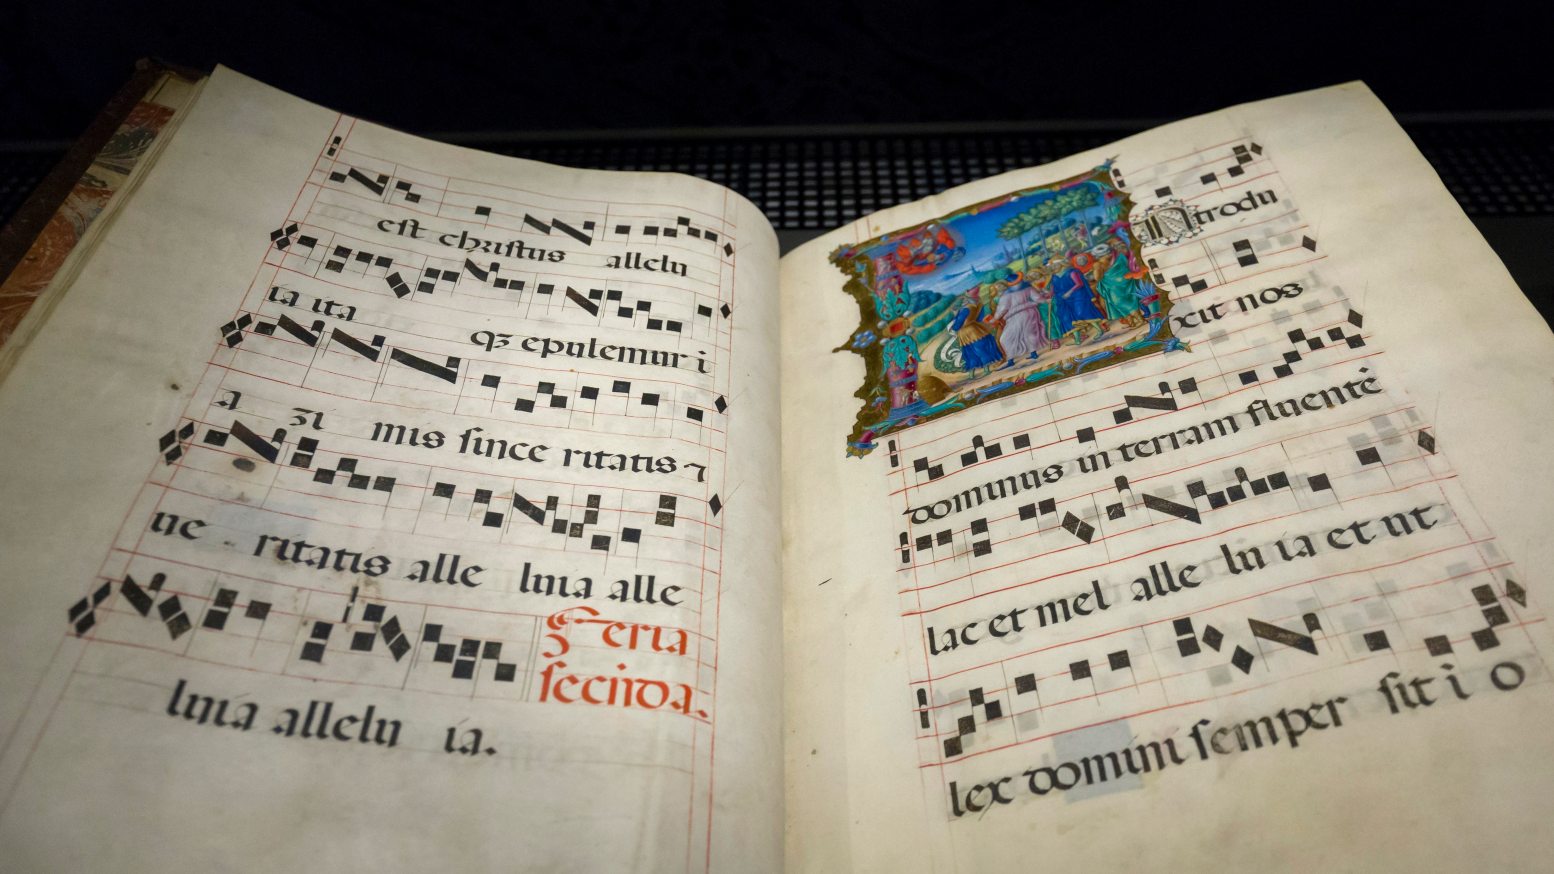 est christus allelu
ia ita qȝ epulemur i
a ȝi mis since ritatis ⁊
ue ritatis alle luia alle
luia allelu ia.
Feria
secunda.
INtrodu
xit uos
dominus in terram fluentē
lac et mel alle lu ia et ut
lex domini semper sit i o